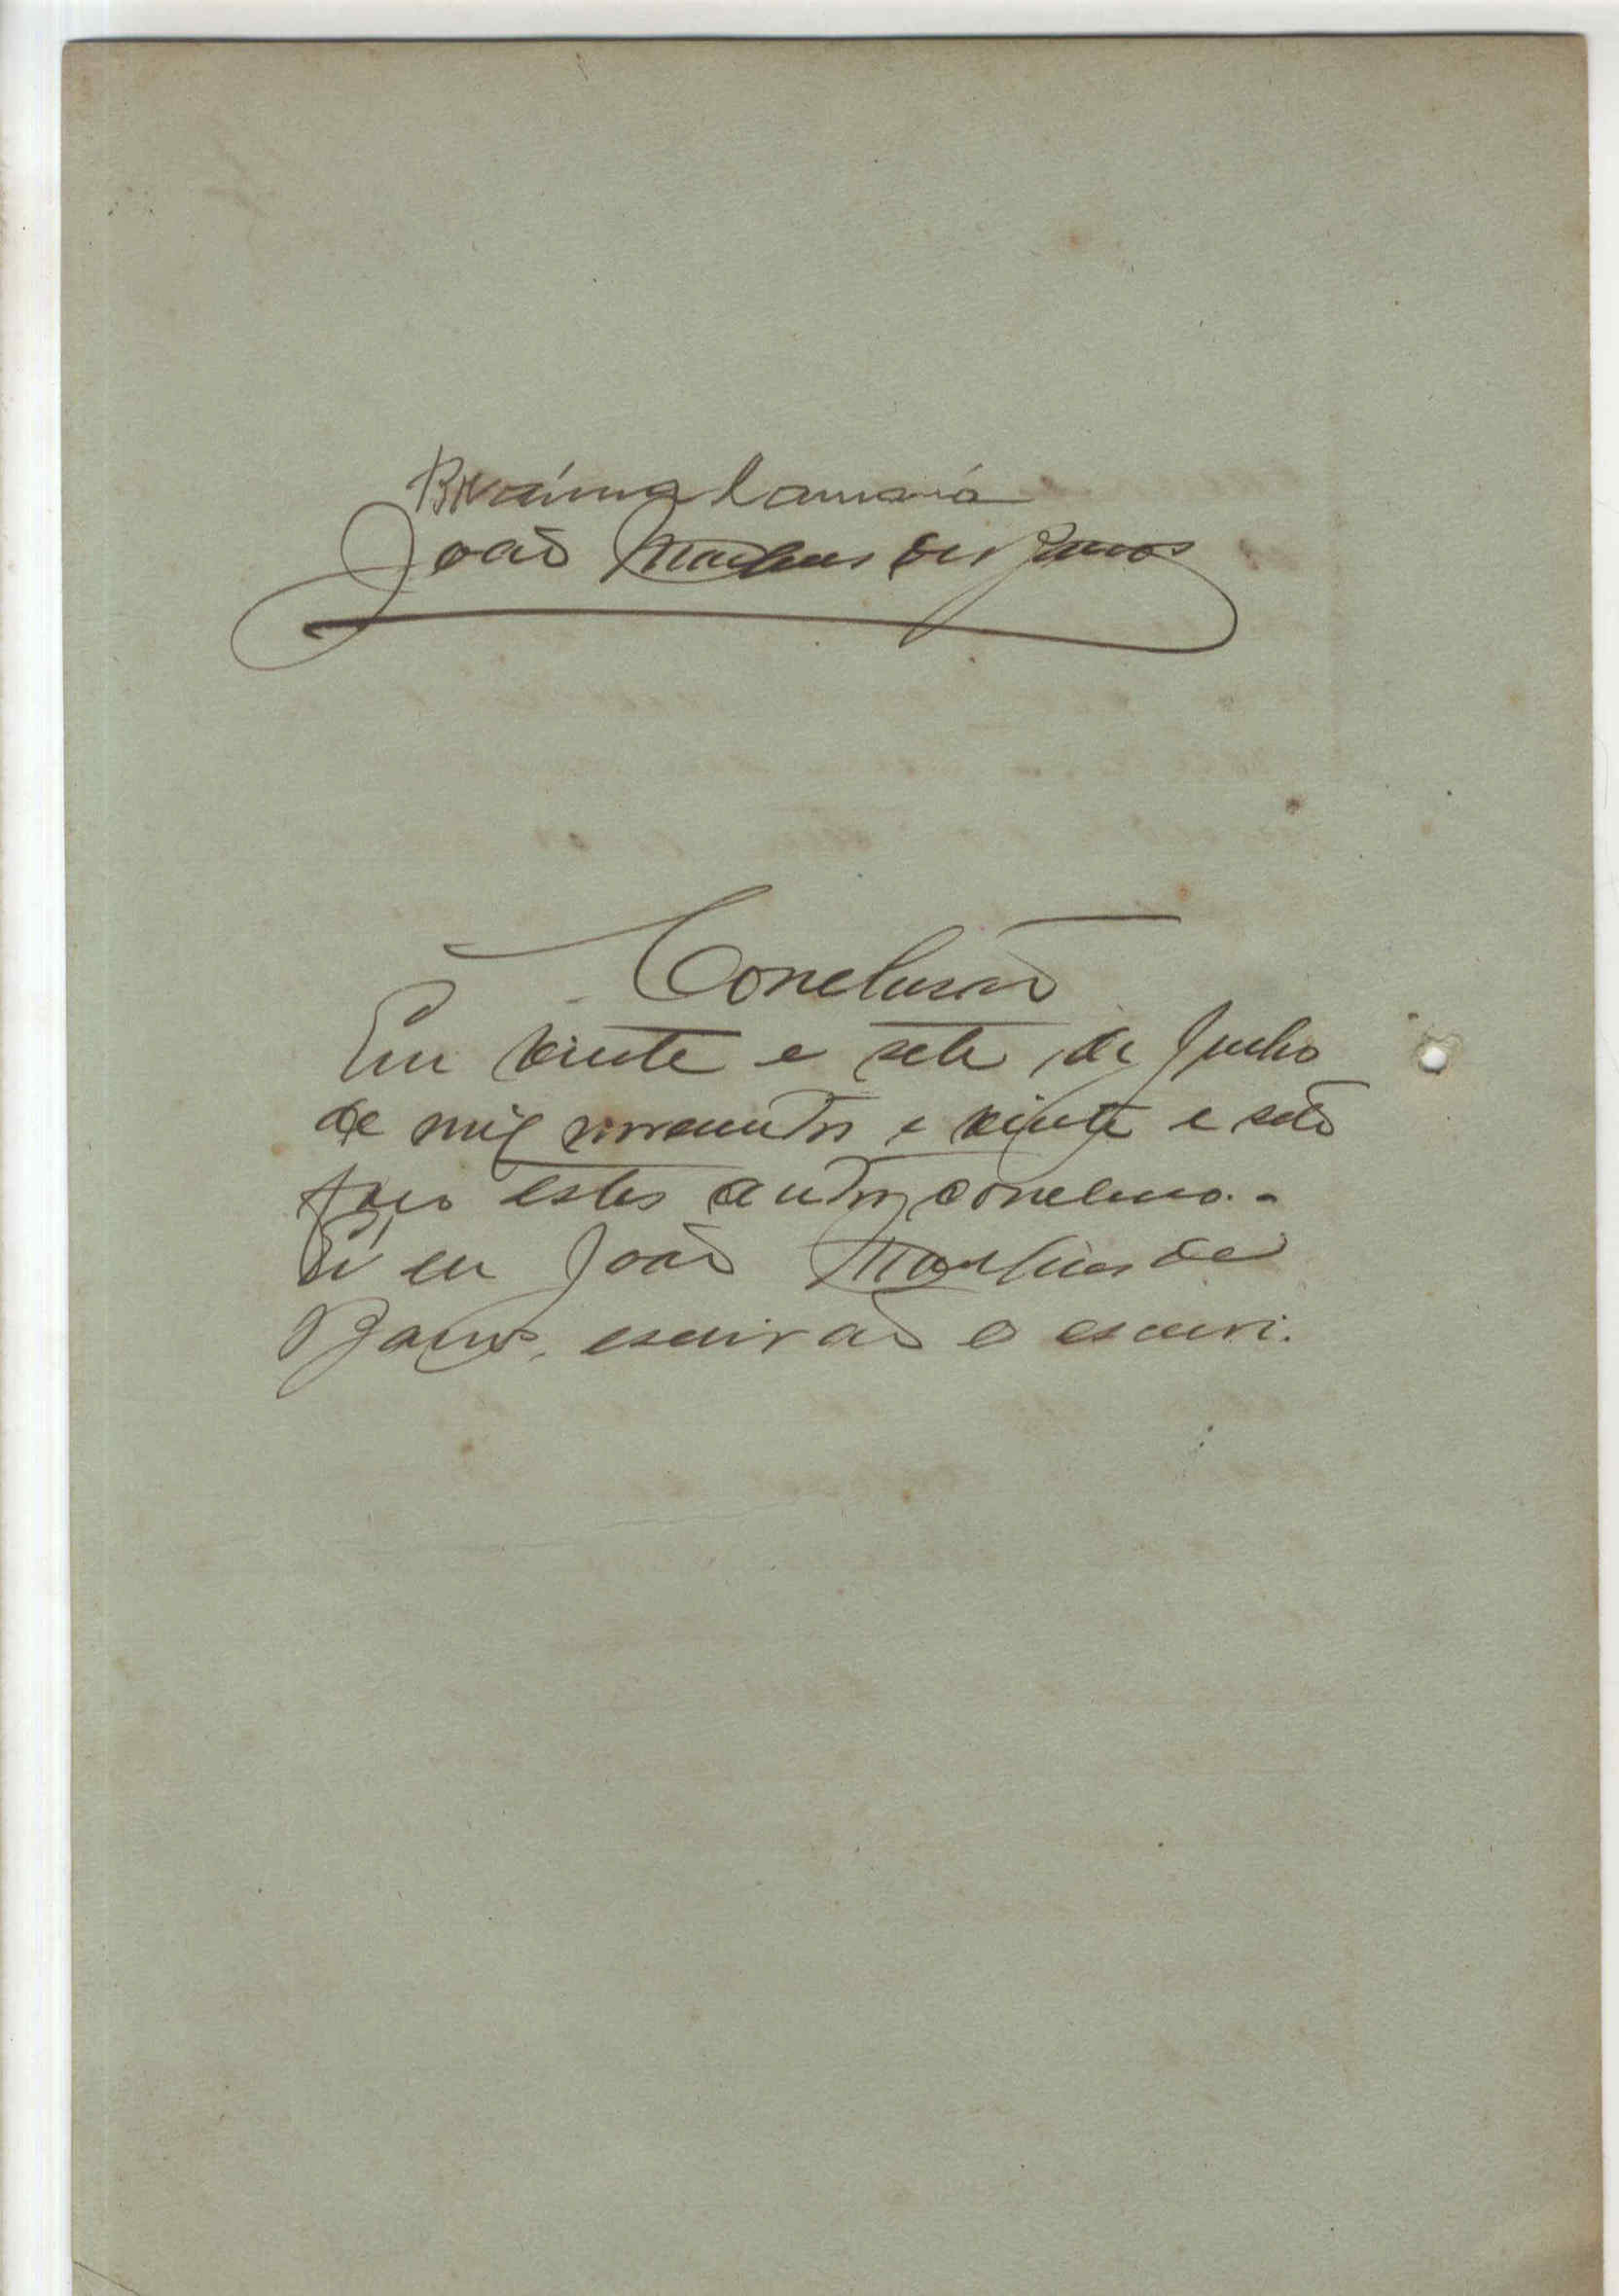 João Martins de Barros
Conclusão
Em vinte e sete de Junho
de mil novecentos e vinte e sete
faço estes autos conclusos.-
Eu João Martins de
Barros, escrivão o escrevi.